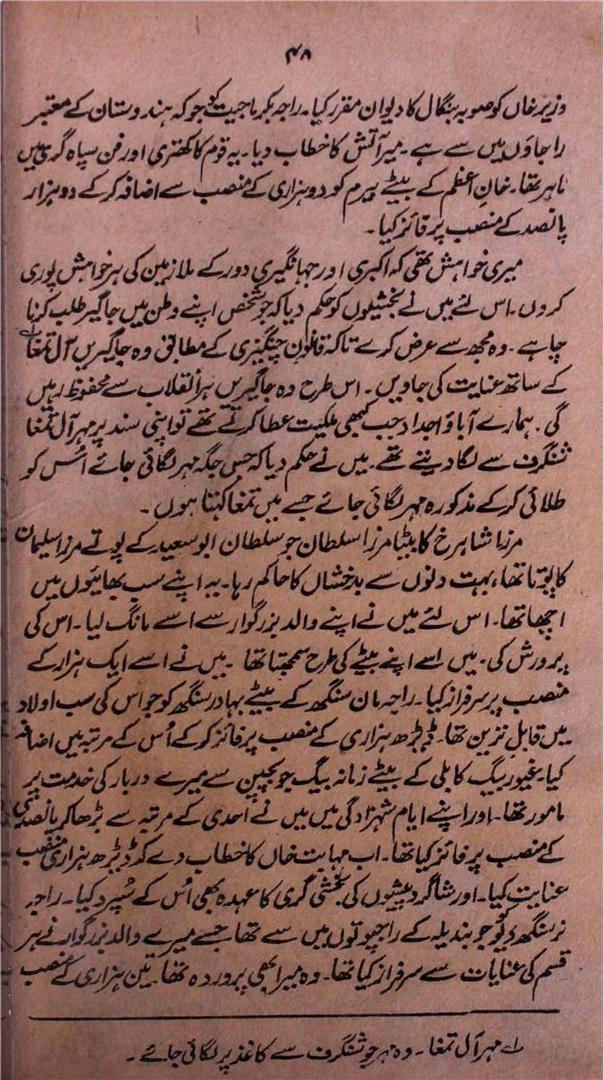 ۴۸
وزیر خاں کو صوبہ بنگال کا دیوان مقرر کیا۔ راجہ بکرماجیت کو جو کہ ہندوستان کے معتبر
راجاؤں میں سے ہے۔ میر آتش کا خطاب دیا۔ یہ قوم کا کھتری اور فن سپاہ گری میں
ماہر تھا۔ خانِ اعظم کے بیٹے بیرم کو دو ہزاری کے منصب سے اضافہ کر کے دو ہزار
پانصد کے منصب پر فائز کیا۔
میری خواہش تھی کہ اکبری اور جہانگیری دور کے ملازمین کی ہر خواہش پوری
کروں۔ اس لئے میں نے بخشیلوں کو حکم دیا کہ جو شخص اپنے وطن میں جاگیر طلب کرنا
چاہے۔ وہ مجھ سے عرض کرے تاکہ قانونِ چنگیزی کے مطابق وہ جاگیریں آل تمغا لے
کے ساتھ عنایت کی جاویں۔ اس طرح وہ جاگیریں ہر انقلاب سے محفوظ رہیں
گی۔ ہمارے آباؤ اجداد جب کبھی ملکیت عطا کرتے تھے تو اپنی سند پر مہر آل تمغا
شنگرف سے لگا دیتے تھے۔ میں نے حکم دیا کہ جس جگہ مہر لگائی جائے اُس کو
طلائی کر کے مذکورہ مہر لگائی جائے جسے میں تمغا کہتا ہوں۔
مرزا شاہرخ کا بیٹا مرزا سلطان جو سلطان ابو سعید کے پوتے مرزا سلیمان
کا پوتا تھا، بہت دنوں سے بدخشاں کا حاکم رہا۔ یہ اپنے سب بھائیوں میں
اچھا تھا۔ اس لئے میں نے اپنے والد بزرگوار سے اسے مانگ لیا۔ اس کی
پرورش کی۔ میں اسے اپنے بیٹے کی طرح سمجھتا تھا۔ میں نے اسے ایک ہزار کے
منصب پر سرفراز کیا۔ راجہ مان سنگھ کے بیٹے بہادر سنگھ کو جو اس کی سب اولاد
میں قابل ترین تھا۔ ڈیڑھ ہزاری کے منصب پر فائز کر کے اُس کے مرتبہ میں اضافہ
کیا۔ غیور بیگ کابلی کے بیٹے زمانہ بیگ جو بچپن سے میرے دربار کی خدمت پر
مامور تھا۔ اور اپنے ایام شہزادگی میں میں نے احدی کے مرتبہ سے بڑھا کر پانصدی
کے منصب پر فائز کیا تھا۔ اب مہابت خاں کا خطاب دے کر ڈیڑھ ہزاری منصب
عنایت کیا۔ اور شاگرد پیشوں کی بخشی گری کا عہدہ بھی اُس کے سُپرد کیا۔ راجہ
نرسنگھ دیو جو بندیلہ کے راجپوتوں میں سے تھا جسے میرے والد بزرگوار نے ہر
قسم کی عنایات سے سرفراز کیا تھا۔ وہ میرا بھی پروردہ تھا۔ تین ہزاری کے منصب
لے مہر آل تمغا۔ وہ مہر جو شنگرف سے کاغذ پر لگائی جائے۔